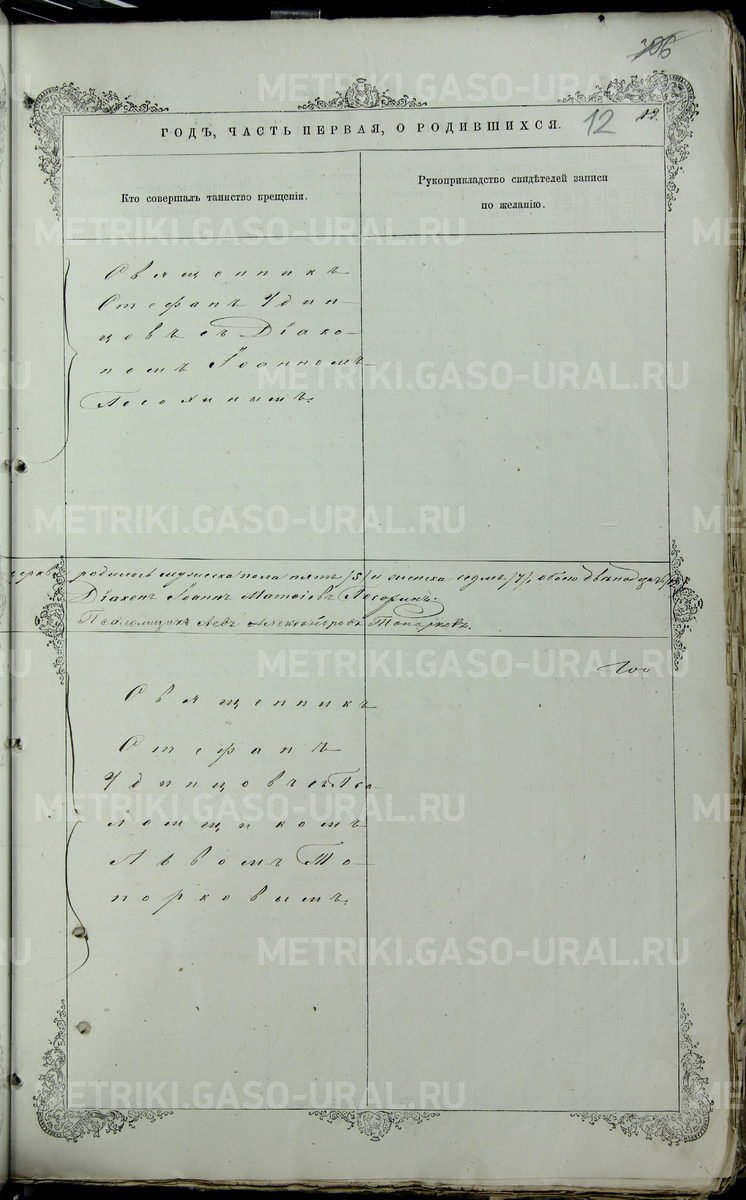 306
12
12.
ГОДЪ, ЧАСТЬ ПЕРВАЯ, О РОДИВШИХСЯ.
Кто совершалъ таинство крещенія.
Рукоприкладство свидѣтелей записи
по желанію.
Священникъ
Стефанъ Удин-
цовъ съ Діако-
номъ Іоанномъ
родилось мужеска пола пять /5/ и женска седмь /7/, обоего двѣнадцать
Діаконъ Іоаннъ
Псаломщикъ Левъ Александровъ Топорковъ.
Священникъ
Стефанъ
Удинцовъ съ Пса-
ломщикомъ
Львомъ То-
порковымъ.
METRIKI.GASO-URAL.RU